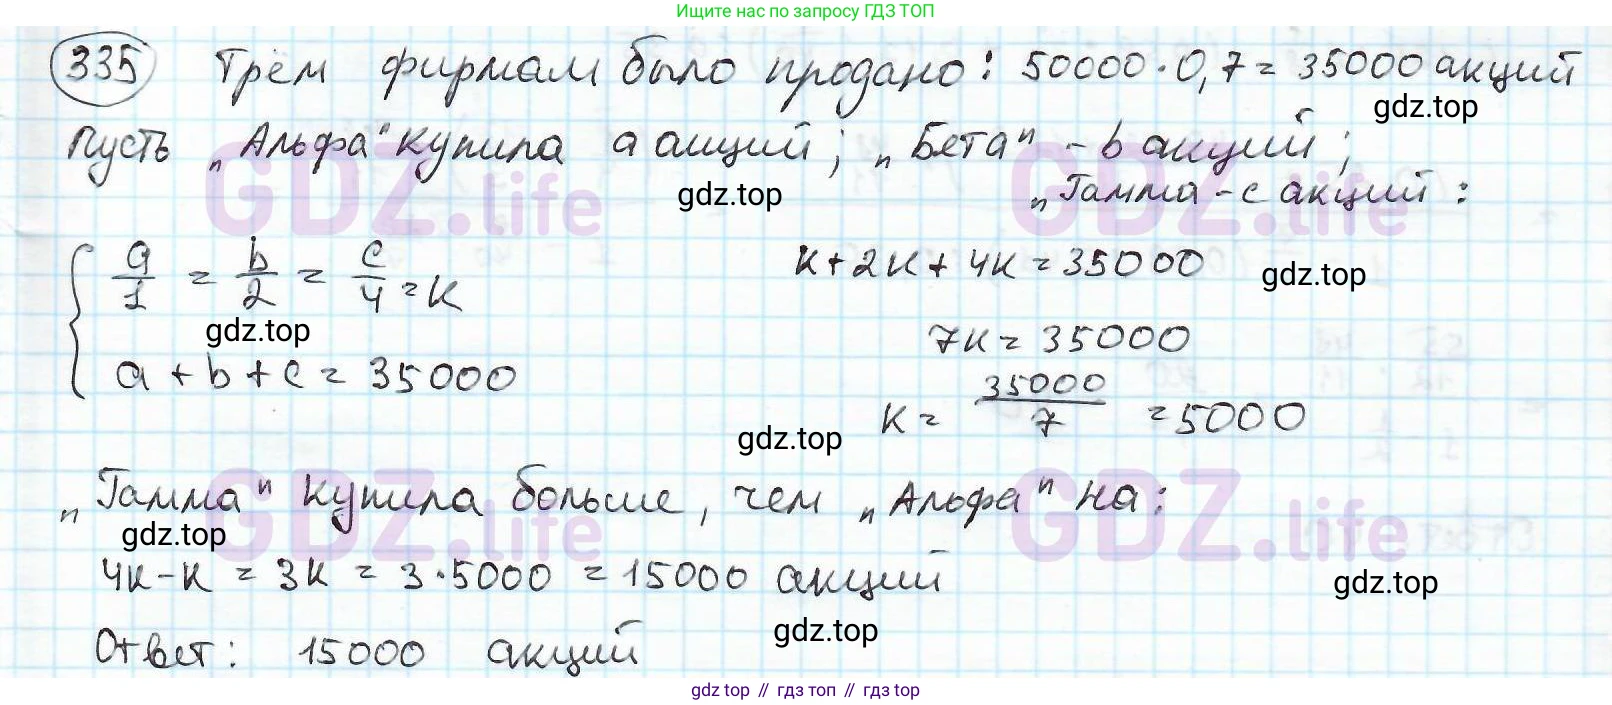 Ищите нас по запросу ГДЗ ТОП
335 Трём фирмам было продано: 50000·0,7 = 35000 акций
gdz.top
Пусть „Альфа" купила a акций; „Бета" - b акций;
gdz.top
„Гамма - c акций:
GDZ.life GDZ.life
a/1 = b/2 = c/4 = k
k+2k+4k = 35000
gdz.top
gdz.top
a + b + c = 35000
7k = 35000
k = 35000/7 = 5000
gdz.top
„Гамма" купила больше, чем „Альфа" на:
gdz.top
GDZ.life GDZ.life
4k-k = 3k = 3·5000 = 15000 акций
gdz.top
Ответ: 15000 акций
gdz.top
gdz top // гдз топ // гдз top